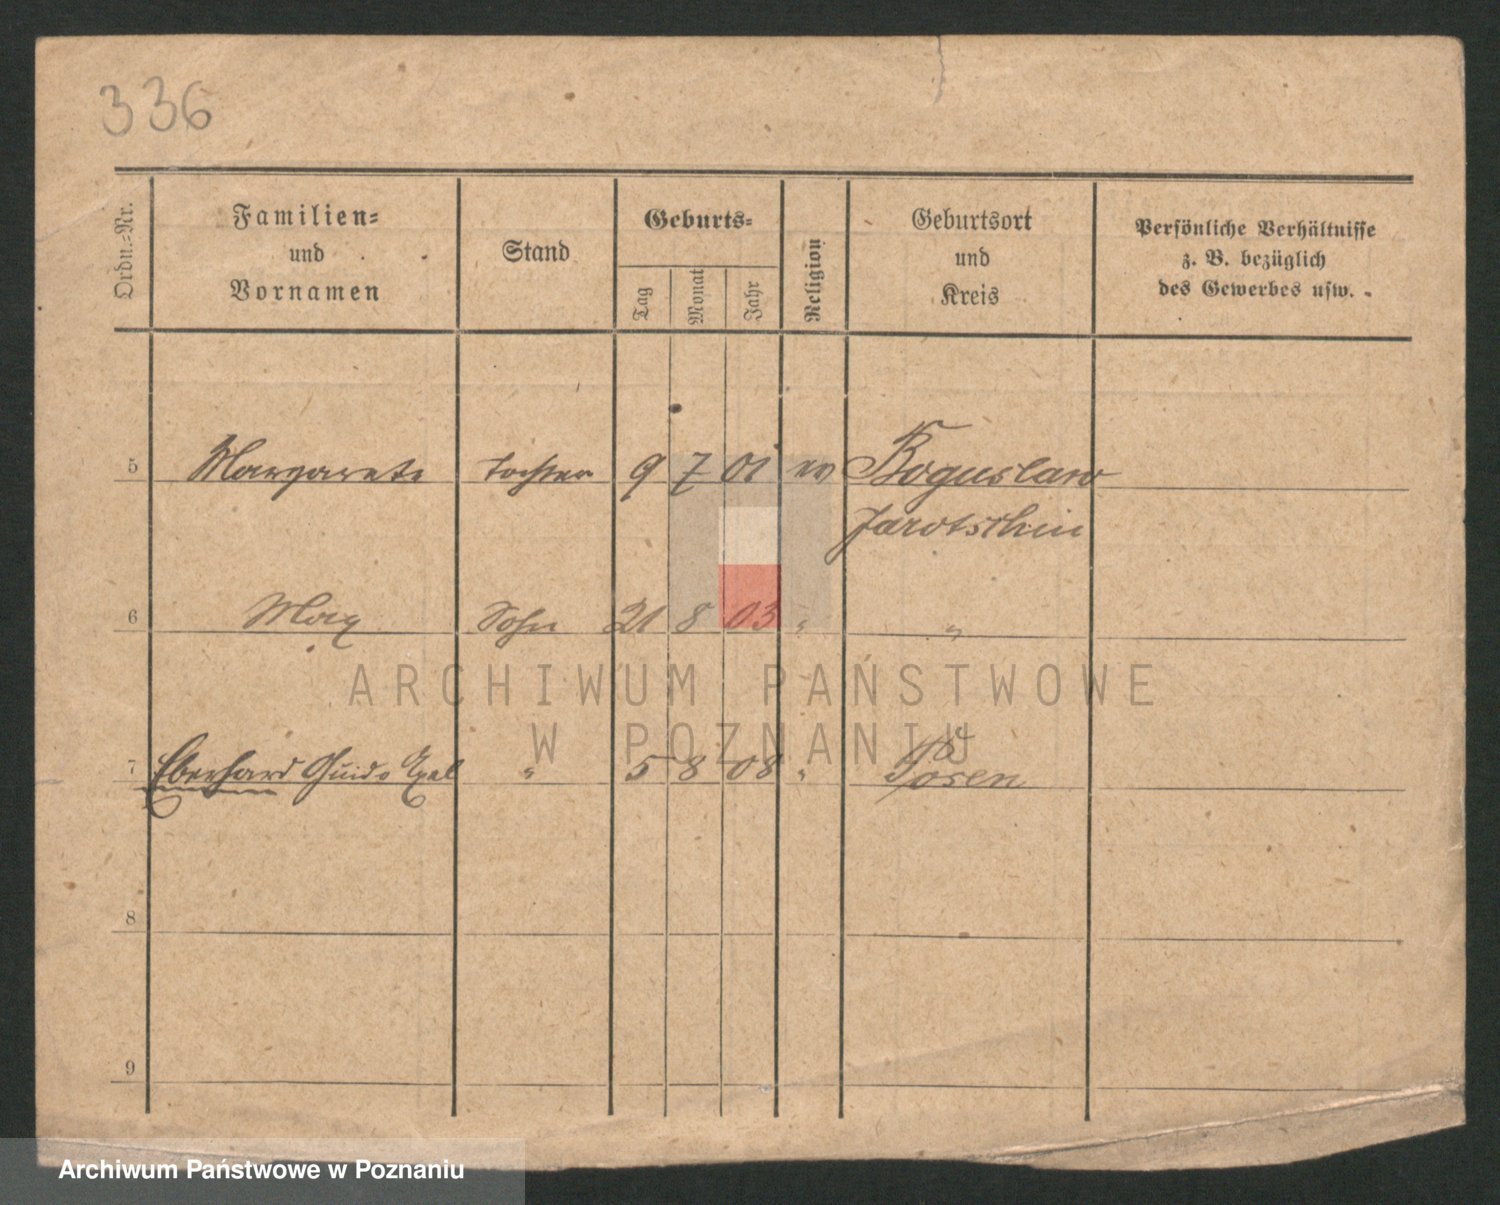 336
Ordn.-Nr.
Familien-
und
Vornamen
Stand
Geburts-
Tag
Monat
Jahr
Religion
Geburtsort
und
Kreis
Persönliche Verhältnisse
z. B. bezüglich
des Gewerbes usw.
5 Margarete Tochter 9 7 01 ev Boguslaw
Jarotschin
6 Max Sohn 21 8 03 " "
ARCHIWUM PAŃSTWOWE
W POZNANIU
7 Eberhard Guido Axel " 5 8 08 " Posen
8
9
Archiwum Państwowe w Poznaniu